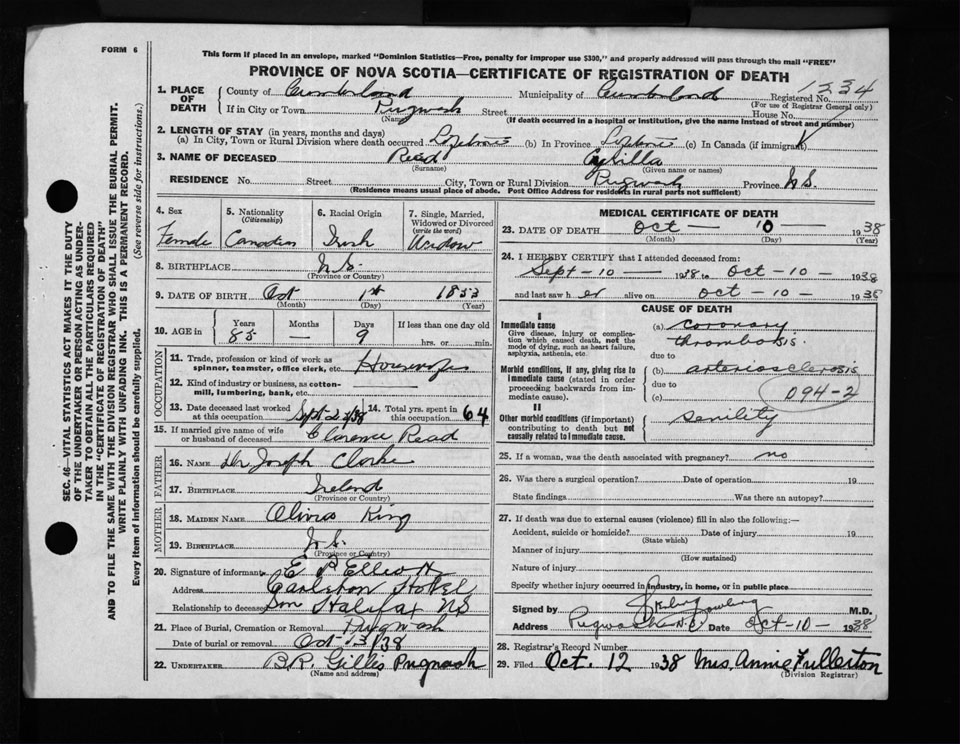 FORM 6
This form if placed in an envelope, marked "Dominion Statistics—Free, penalty for improper use $300," and properly addressed will pass through the mail "FREE"
PROVINCE OF NOVA SCOTIA—CERTIFICATE OF REGISTRATION OF DEATH
SEC. 46—VITAL STATISTICS ACT MAKES IT THE DUTY
OF THE UNDERTAKER OR PERSON ACTING AS UNDER-
TAKER TO OBTAIN ALL THE PARTICULARS REQUIRED
IN THE "CERTIFICATE OF REGISTRATION OF DEATH"
AND TO FILE THE SAME WITH THE DIVISION REGISTRAR WHO SHALL ISSUE THE BURIAL PERMIT.
WRITE PLAINLY WITH UNFADING INK. THIS IS A PERMANENT RECORD.
Every item of information should be carefully supplied. (See reverse side for instructions.)
1. PLACE OF DEATH County of Cumberland Municipality of Cumberland Registered No. 1234
(For use of Registrar General only)
If in City or Town Pugwash Street House No.
(Name) (If death occurred in a hospital or institution, give the name instead of street and number)
2. LENGTH OF STAY (in years, months and days)
(a) In City, Town or Rural Division where death occurred Lifetime (b) In Province Lifetime (c) In Canada (if immigrant)
3. NAME OF DECEASED Read
(Surname) (Given name or names)
RESIDENCE No. Street City, Town or Rural Division Pugwash Province N.S.
(Residence means usual place of abode. Post Office Address for residents in rural parts not sufficient)
4. Sex Female
5. Nationality (Citizenship) Canadian
6. Racial Origin Irish
7. Single, Married, Widowed or Divorced (write the word) Widow
8. BIRTHPLACE N.S.
(Province or Country)
9. DATE OF BIRTH Oct 1st 1853
(Month) (Day) (Year)
10. AGE in Years 85 Months — Days 9 If less than one day old hrs. or min.
OCCUPATION
11. Trade, profession or kind of work as spinner, teamster, office clerk, etc. Housewife
12. Kind of industry or business, as cotton-mill, lumbering, bank, etc.
13. Date deceased last worked at this occupation
14. Total yrs. spent in this occupation 64
15. If married give name of wife or husband of deceased Clarence Read
FATHER
16. NAME Dr Joseph Clarke
17. BIRTHPLACE Ireland
(Province or Country)
MOTHER
18. MAIDEN NAME Olivia King
19. BIRTHPLACE N.S.
(Province or Country)
20. Signature of informant E P Elliott
Address Carleton Hotel
Relationship to deceased Son Halifax NS
21. Place of Burial, Cremation or Removal Pugwash
Date of burial or removal Oct-13/38
22. UNDERTAKER B.R. Gillis Pugwash
(Name and address)
MEDICAL CERTIFICATE OF DEATH
23. DATE OF DEATH Oct — 10 — 1938
(Month) (Day) (Year)
24. I HEREBY CERTIFY that I attended deceased from:
Sept-10 — 1938 to Oct-10- 1938
and last saw her alive on Oct-10- 1938
CAUSE OF DEATH
I
Immediate cause
Give disease, injury or complication which caused death, not the mode of dying, such as heart failure, asphyxia, asthenia, etc.
(a) coronary
thrombosis.
due to
Morbid conditions, if any, giving rise to immediate cause (stated in order proceeding backwards from immediate cause).
(b) arteriosclerosis
due to
(c) 094-2
II
Other morbid conditions (if important) contributing to death but not causally related to immediate cause.
senility
25. If a woman, was the death associated with pregnancy? no
26. Was there a surgical operation? Date of operation 19
State findings Was there an autopsy?
27. If death was due to external causes (violence) fill in also the following:—
Accident, suicide or homicide? Date of injury 19
(State which)
Manner of injury
(How sustained)
Nature of injury
Specify whether injury occurred in industry, in home, or in public place
Signed by M.D.
Address Pugwash N.S. Date Oct-10- 1938
28. Registrar's Record Number
29. Filed Oct. 12 1938 Mrs. Annie Fullerton
(Division Registrar)